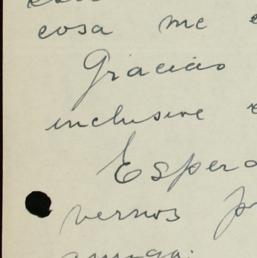 cosa me
Gracias
inclusive
Espero
vernos
amiga.